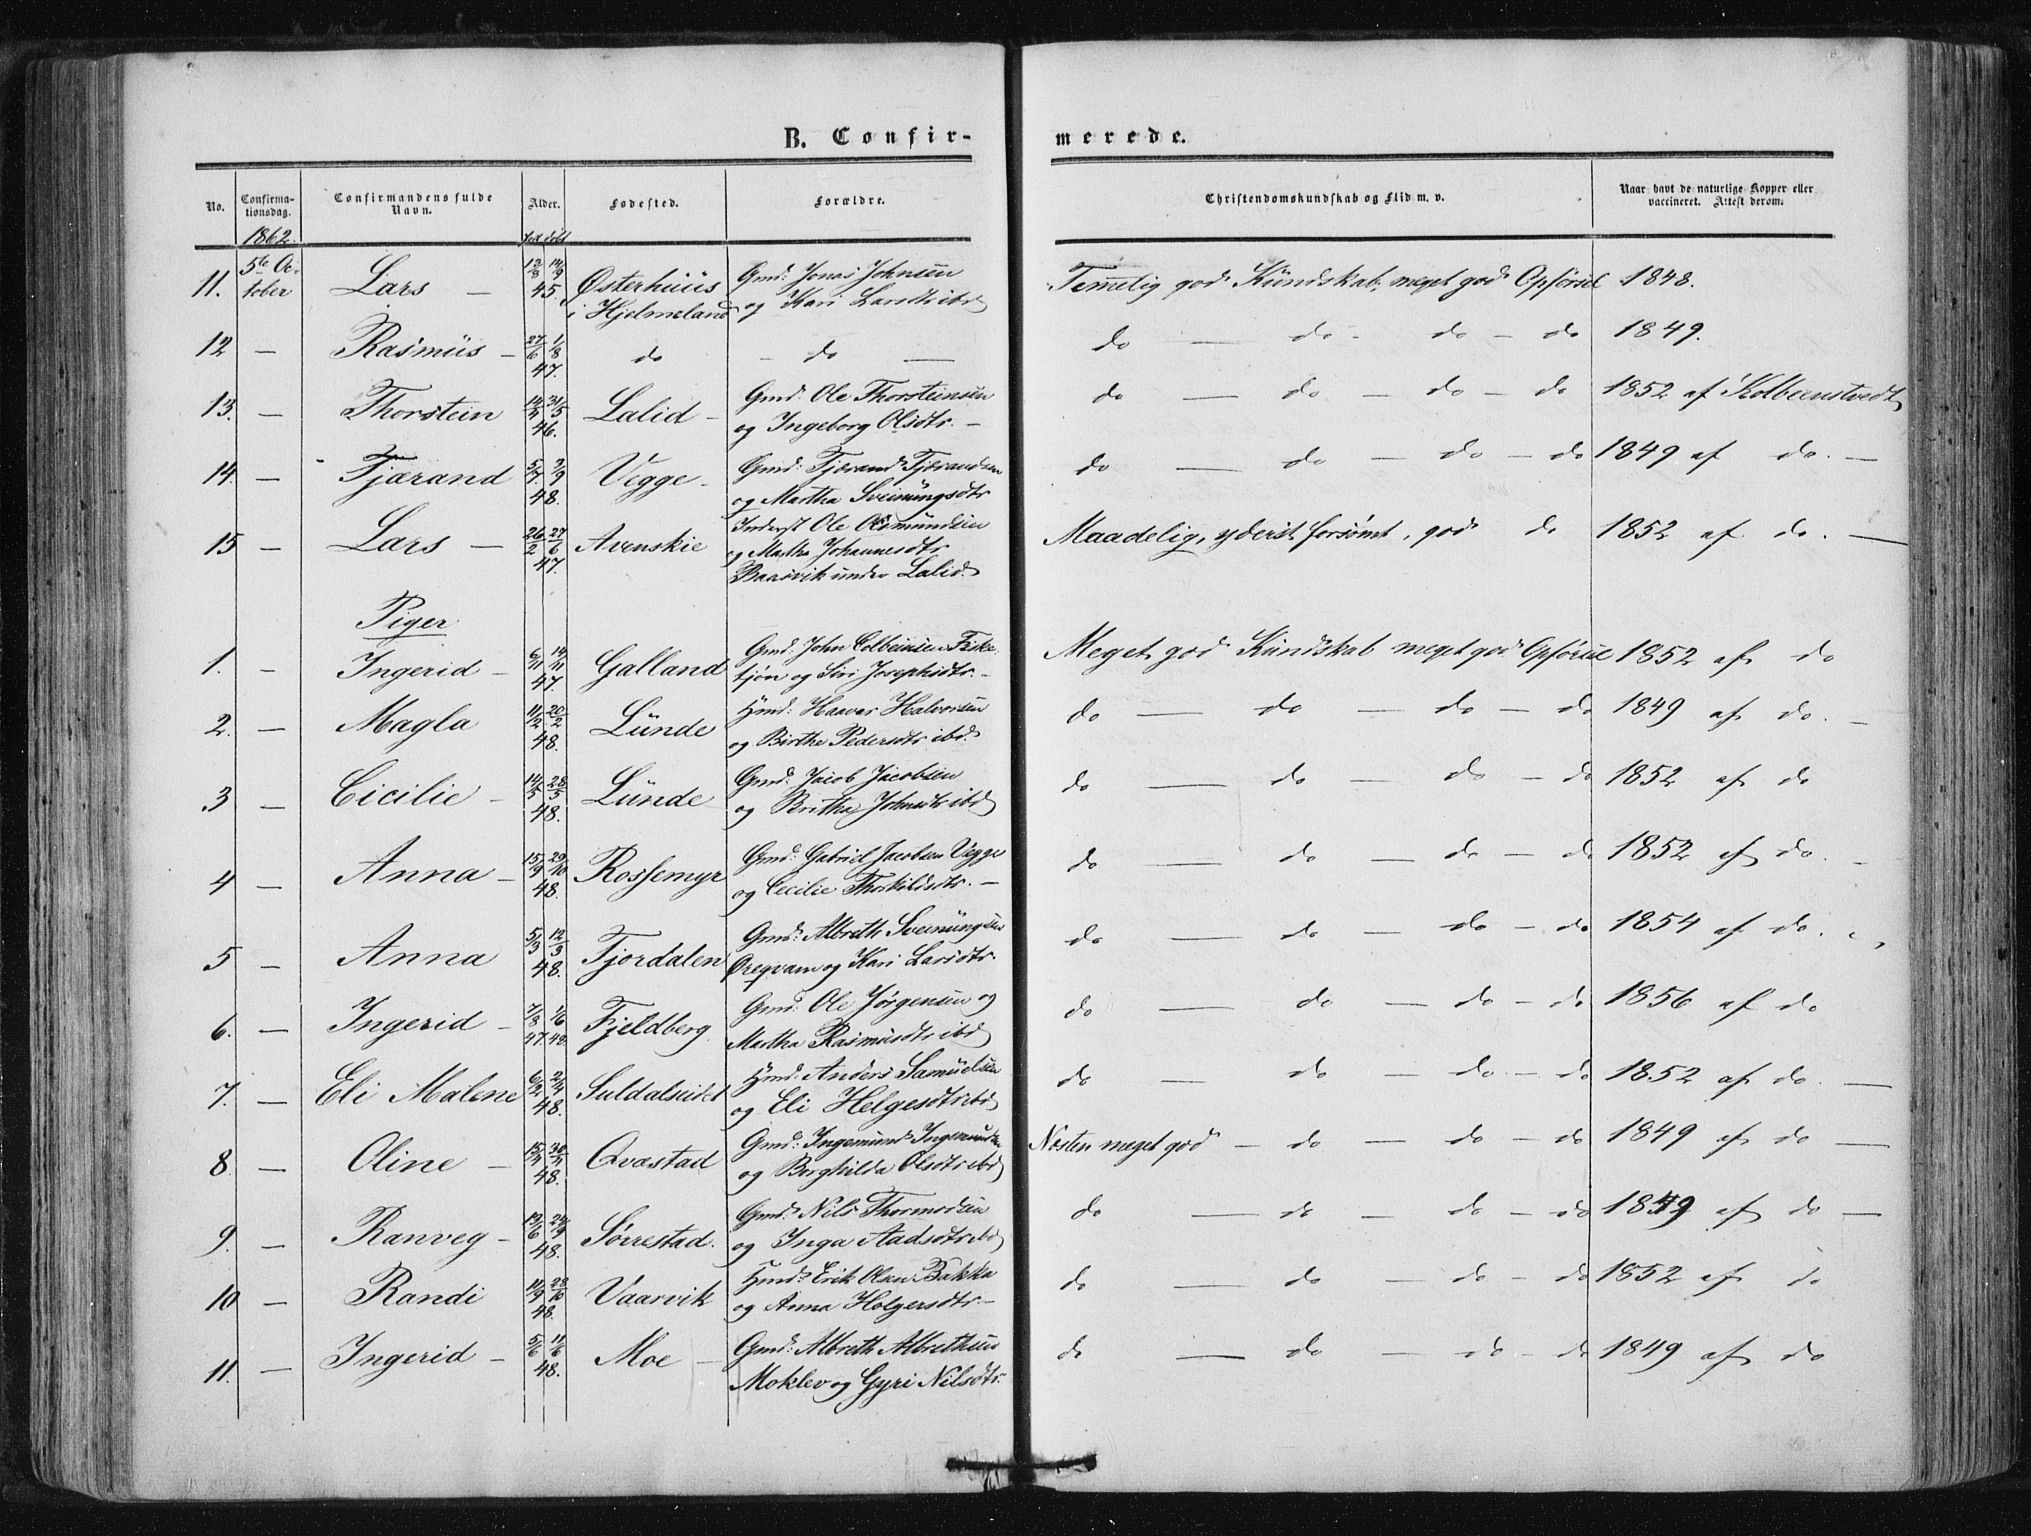 B. Confir-
merede.
No. Confirma-tionsdag. Confirmandens fulde Navn. Alder. Fødested. Forældre. Christendomskundskab og Flid m. v. Naar havt de naturlige Kopper eller vaccineret. Attest derom.
1862. født døbt
11. 5te October Lars — 13/8 14/9 45. Østerhuus i Hjelmeland Gmd: Jonas Johnsen og Kari Larsdtr ibd Temmelig god Kundskab, meget god Opførsel 1848.
12 — Rasmus — 27/6 1/8 47. do - do — do — do - do - do 1849.
13. — Thorstein 14/4 31/5 46. Lalid - Gmd: Ole Thorsteinsen og Ingeborg Olsdtr. - do — do - do - do 1852 af Kolbeenstvedt
14. — Tjærand 5/7 9/9 48. Vegge - Gmd: Tjærand Tjærandsen og Martha Sveinungsdtr do — do - do - do 1849 af do. —
15 — Lars — 26/2 27/6 47. Avenskie Inderst Ole Osmundsen og Martha Johannesdtr Baasvik under Lalid. Maadelig, yderst forsømt, god do 1852 af do. —
Piger
1. — Ingerid - 6/11 14/11 47. Galland Gmd: John Colbeinsen Fiske-tjøn og Siri Josephsdtr. - Meget god Kundskab meget god Opførsel 1852 af do
2. — Magla 11/2 20/2 48. Lunde Hmd: Haavar Halvorsen og Birthe Pedersdtr ibd. do — do - do - do 1849 af do. -
3 — Cicilie - 14/3 28/3 48. Lunde Gmd: Jacob Jacobsen og Britha Johnsdtr ibd do — do - do - do 1852 af do
4 — Anna - 15/9 29/10 48. Rossemyr Gmd: Gabriel Jacobsen Vegge og Cecilie Thorkildsdtr. - do — do - do - do 1852 af do. -
5 — Anna 5/3 12/3 48. Tjordalen Gmd: Albreth Sveinungsen Øreqvam og Kari Larsdtr. do — do - do - do 1854 af do.
6. — Ingerid - 7/8 47. 1/6 48. Fjeldberg Gmd: Ole Jørgensen og Martha Rasmusdtr ibd do — do - do - do 1856 af do
7. — Eli Malene 6/2 2/4 48. Suldalseidet Hmd: Anders Samuelsen og Eli Helgesdtr ibd do — do - do - do 1852 af do. —
8 — Oline - 15/4 30/4 48. Qvæstad Gmd: Ingemund Ingemundsen og Borghilda Olsdtr ibd Næsten meget god - do - do - do 1849 af do —
9. — Ranveg - 13/6 24/9 48. Sørrestad. Gmd: Nils Thormodsen og Inga Aadsdtr ibd do — do - do - do 1849 af do —
10 — Randi 14/9 28/10 48. Vaarvik Hmd: Erik Olsen Bakka og Anna Holgersdtr - do — do - do - do 1852 af do
11. — Ingerid - 5/6 11/6 48. Moe - Gmd: Albreth Albrethsen Moklev og Gyri Nilsdtr. do — do - do - do 1849 af do